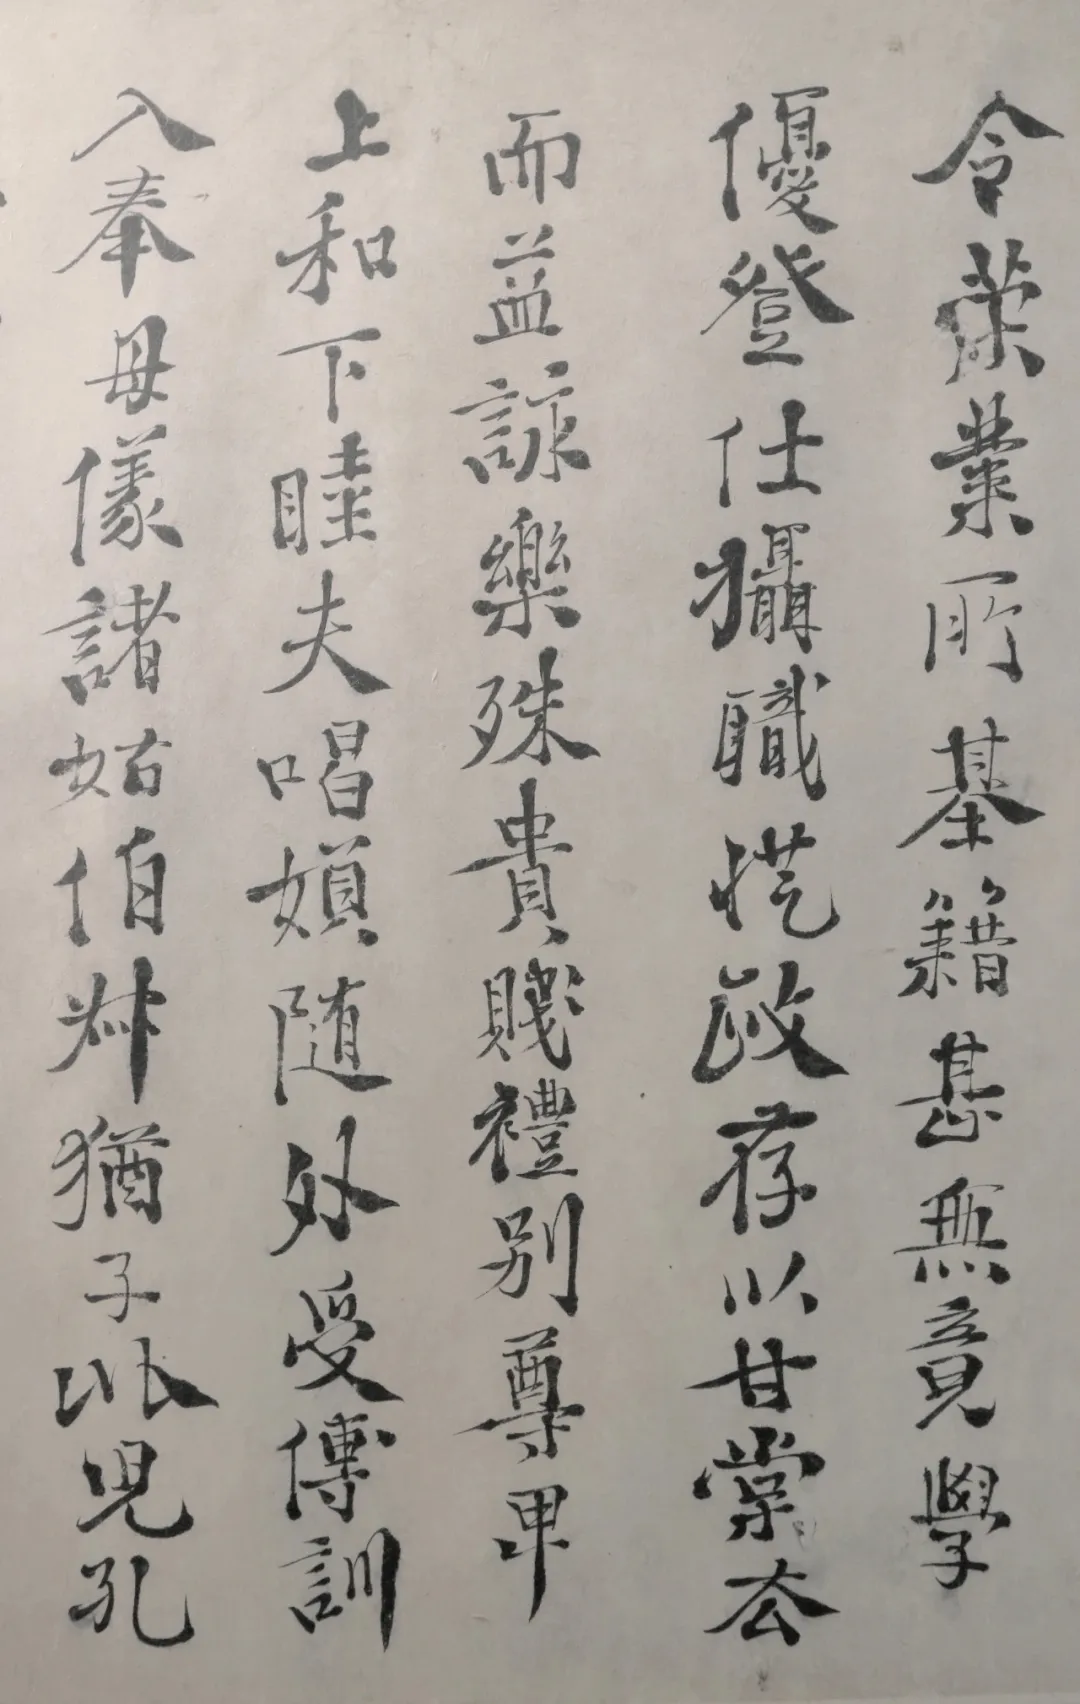 令榮業所基籍甚無竟學
優登仕攝職從政存以甘棠去
而益詠樂殊貴賤禮別尊卑
上和下睦夫唱婦随外受傅訓
入奉母儀諸姑伯叔猶子比兒孔